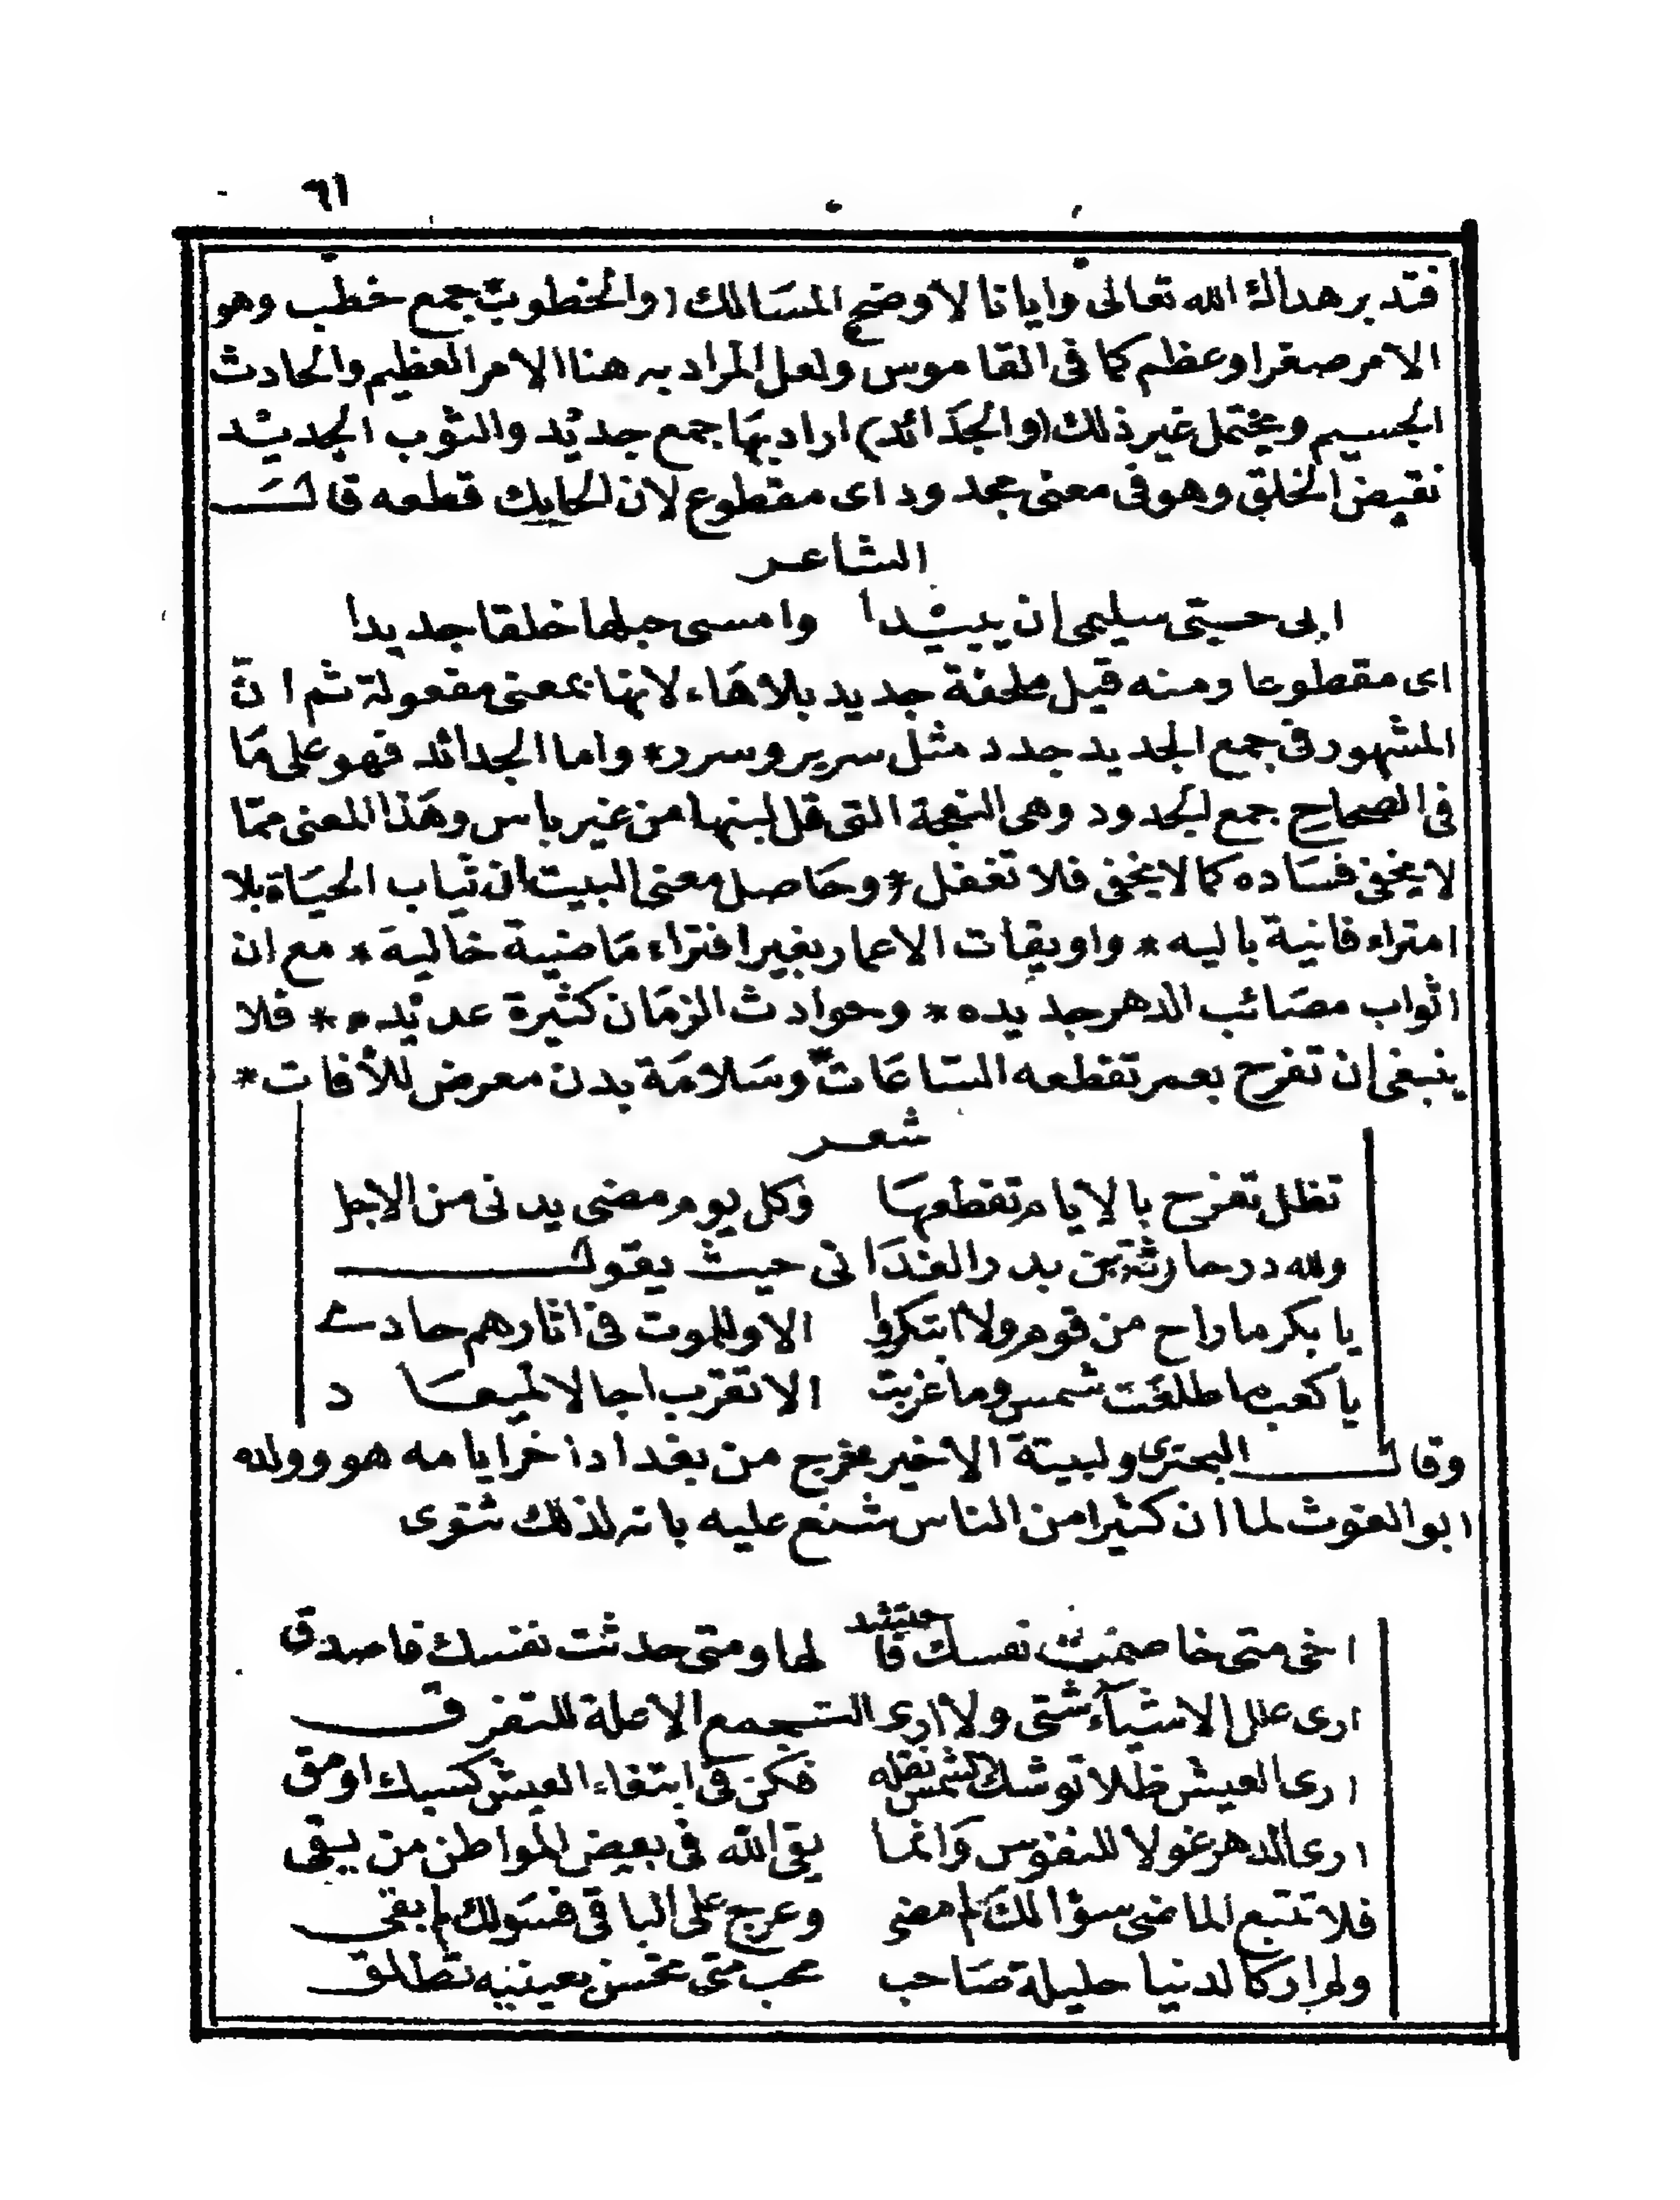 ٦١
فتدبر هداك الله تعالى وايانا لاوضح المسالك (والخطوب) جمع خطب وهو
الامر صغر او عظم كما فى القاموس ولعل المراد به هنا الامر العظيم والحادث
الجسيم ويحتمل غير ذلك (والجدائد) اراد بها جمع جديد والثوب الجديد
نقيض الخلق وهو فى معنى مجدود اى مقطوع لان الحايك قطعه قال
الشاعر
ابى حبى سليمى ان يبيدا وامسى حبلها خلقا جديدا
اى مقطوعا ومنه قيل ملحفة جديد بلا هاء لانها بمعنى مفعولة ثم ان
المشهور فى جمع الجديد جدد مثل سرير وسرر* واما الجدائد فهو على ما
فى الصحاح جمع لجدود وهى النعجة التى قل لبنها من غير باس وهذا المعنى مما
لا يخفى فساده كما لا يخفى فلا تغفل* وحاصل معنى البيت ان ثياب الحياة بلا
امتراء فانية باليه* واويقات الاعمار بغير افتراء ماضية خالية* مع ان
اثواب مصائب الدهر جديده* وحوادث الزمان كثيرة عديده* فلا
ينبغى ان تفرح بعمر تقطعه الساعات* وسلامة بدن معرض للأفات*
شعر
تظل تفرح بالايام تقطعها وكل يوم مضى يدنى من الاجل
ولله در حارثة بن بدر الغدانى حيث يقول
يا بكر ما راح من قوم ولا ابتكروا الا وللموت فى اثارهم حادى
يا كعب ما طلعت شمس وما غربت الا تقرب اجالا لميعاد
وقال البحترى ولبيتة الاخير مخرج من بغداد اخر ايامه هو وولده
ابو الغوث لما ان كثيرا من الناس شنع عليه بانه لذلك ثنوى
اخى متى خاصمت نفسك فاحتشد لها ومتى حدثت نفسك فاصدق
ارى علل الاشياء شتى ولا ارى التجمع الا علة للتفرق
ارى العيش ظلا توشك الشمس نقله فكن فى ابتغاء العيش كسبك او مق
ارى الدهر غولا للنفوس وانما يقى الله فى بعض المواطن من يبقى
فلا تتبع الماضى سؤالك لم مضى وعرج على الباقى فسوله لم بقى
ولم ار كالدنيا حليلة صاحب محب متى تحسن بعينيه تطلق